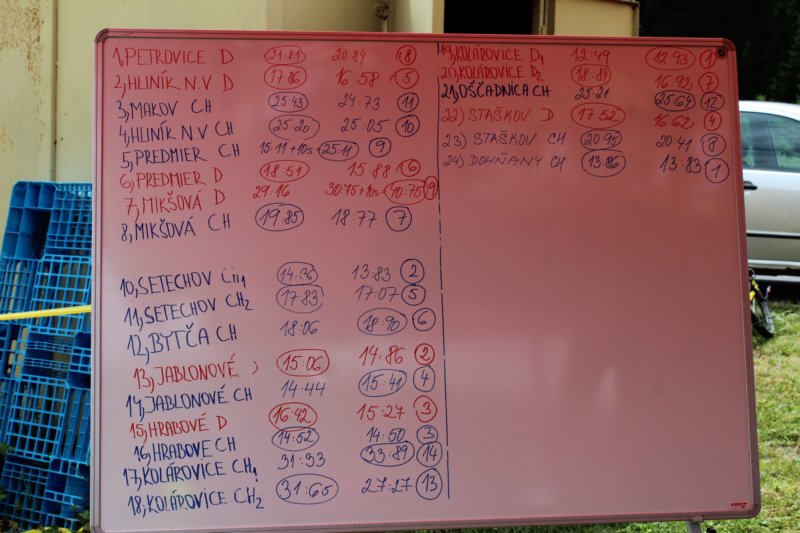 1, PETROVICE D 21:81 20:84 8
2, HLINÍK N.V D 17:86 16:58 5
3, MAKOV CH 25:43 24:73 11
4, HLINÍK N.V CH 25:20 25:05 10
5, PREDMIER CH 15:11+10s=25:11 9
6, PREDMIER D 18:51 15:88 6
7, MIKŠOVÁ D 29:16 30:75+10s=40:75 9
8, MIKŠOVÁ CH 19:85 18:77 7
10, SETECHOV CH1 14:36 13:83 2
11, SETECHOV CH2 17:83 17:07 5
12, BYTČA CH 18:06 18:90 6
13, JABLONOVÉ 15:06 14:86 2
14, JABLONOVÉ CH 14:44 15:41 4
15, HRABOVÉ D 16:42 15:27 3
16, HRABOVÉ CH 14:52 14:50 3
17, KOLÁROVICE CH1 31:33 33:89 14
18, KOLÁROVICE CH2 31:65 27:27 13
19, KOLÁROVICE D1 12:49 12:93 1
20, KOLÁROVICE D2 18:84 16:92 7
21, OŠČADNICA CH 25:21 25:64 12
22) STAŠKOV D 17:52 16:62 4
23) STAŠKOV CH 20:95 20:41 8
24) DOHŇANY CH 13:86 13:83 1